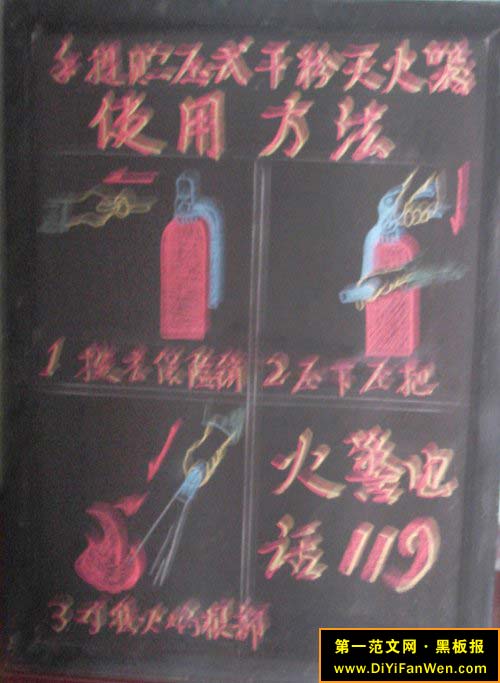 手提贮压式干粉灭火器
使用方法
1拔去保险销
2压下压把
3对准火焰根部
火警电
话119
第一范文网·黑板报
www.DiYiFanWen.com